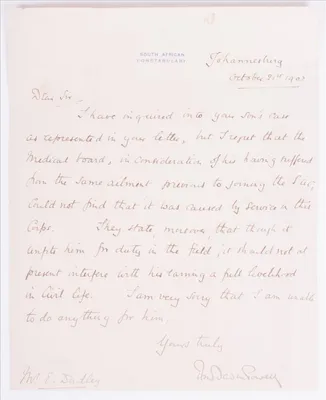 SOUTH AFRICAN
CONSTABULARY
Johannesburg
October 21st 190
Dear Sir,
I have inquired into your son's case
as represented in your letter, but I regret that the
Medical board, in consideration of his having suffered
from the same ailment previous to joining the SAC,
could not find that it was caused by service in this
Corps. They state moreover that though it
unfits him for duty in the field, it should not at
present interfere with his earning a full livelihood
in Civil life. I am very sorry that I am unable
to do anything for him.
Yours truly
Mr E. Dudley